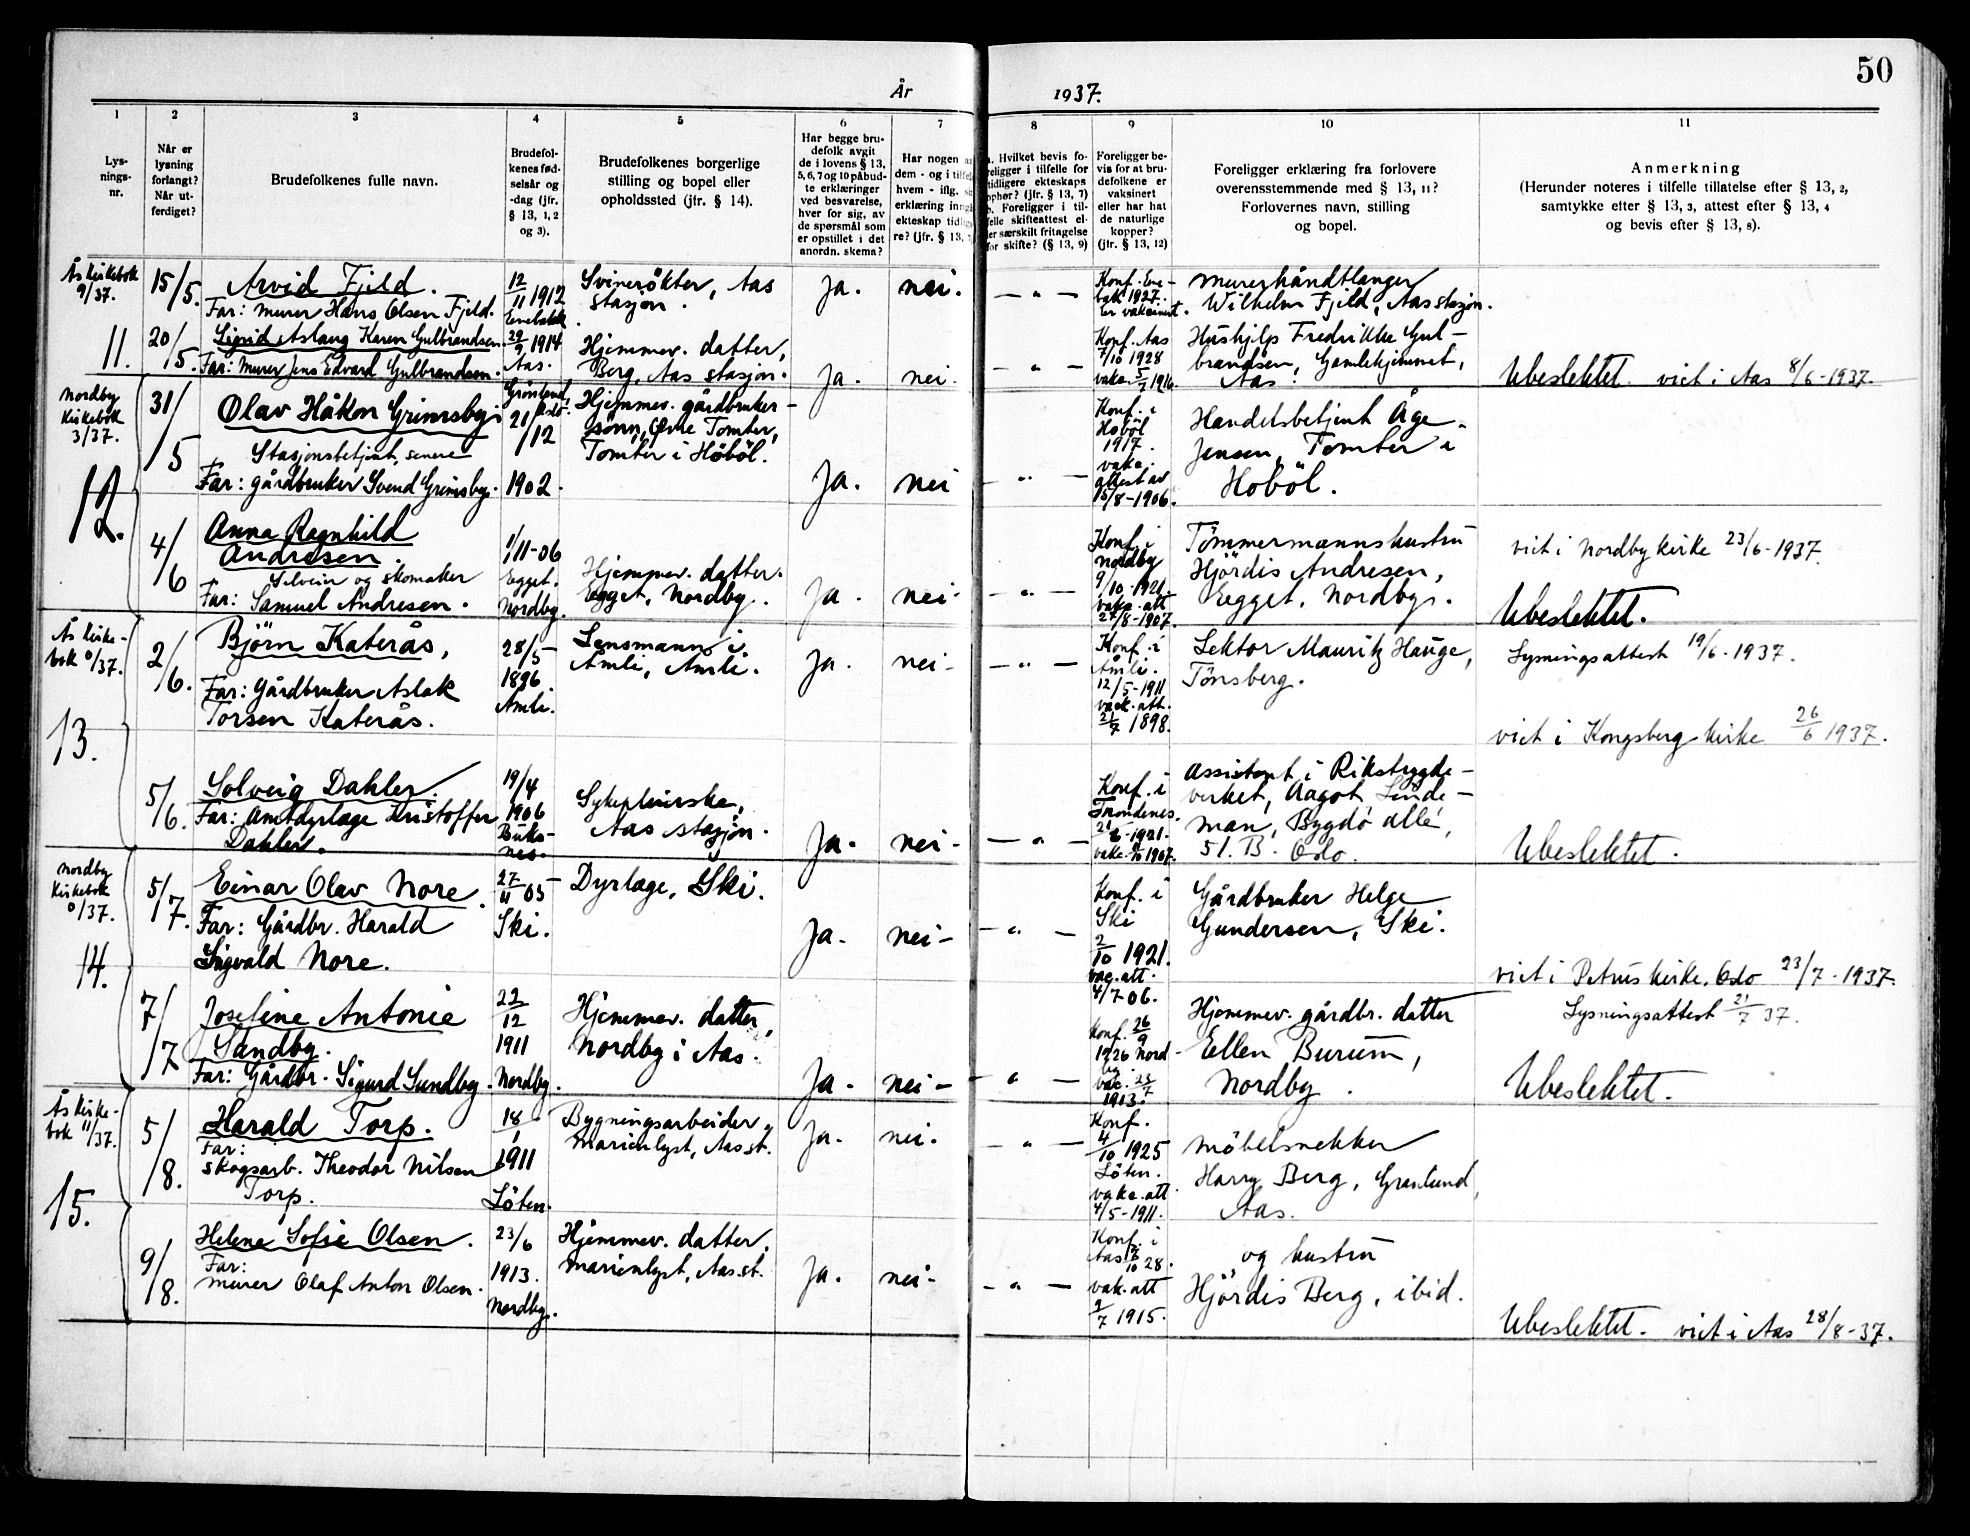 50
År 1937.
1
Lys-
nings-
nr.
2
Når er
lysning
forlangt?
Når ut-
ferdiget?
3
Brudefolkenes fulle navn.
4
Brudefol-
kenes fød-
selsår og
-dag (jfr.
§ 13, 1, 2
og 3).
5
Brudefolkenes borgerlige
stilling og bopel eller
opholdssted (jfr. § 14).
6
Har begge bru-
defolk avgit
de i lovens § 13,
5, 6, 7 og 10 påbud-
te erklæringer
ved besvarelse,
hver for sig, av
de spørsmål som
er opstillet i det
anordn. skema?
7
Har nogen
dem - og i
hvem - iflg.
erklæring
ekteskap
re? (jfr. § 13,
8
Hvilket bevis fo-
religger i tilfelle for
tidligere ekteskaps
ophør? (jfr. § 13, 7)
b. Foreligger i til-
felle skifteattest el-
ler særskilt fritagelse
for skifte? (§ 13, 9)
9
Foreligger be-
vis for at bru-
defolkene er
vaksinert
eller har hat
de naturlige
kopper?
(jfr. § 13, 12)
10
Foreligger erklæring fra forlovere
overensstemmende med § 13, 11?
Forlovernes navn, stilling
og bopel.
11
Anmerkning
(Herunder noteres i tilfelle tillatelse efter § 13, 2,
samtykke efter § 13, 3, attest efter § 13, 4
og bevis efter § 13, 8).
Ås kirkebok
9/37.
11.
15/5.
Arvid Fjeld.
Far: Murer Hans Olsen Fjeld.
12/11 1912
Enebakk
Svinerökter, Aas
stasjon.
Ja.
nei.
— " —
Konf. Ene-
bak 1927.
Er vaksinert.
Murerhåndtlanger
Wilhelm Fjeld, Aas stasjon.
20/5.
Sigrid Aslaug Karen Gulbrandsen
Far: Murer Jens Edvard Gulbrandsen.
29/9 1914
Aas.
Hjemmev. datter,
Berg, Aas stasjon.
Ja.
nei.
— " —
Konf. Aas
7/10 1928
vaks. 5/7 1916.
Hushjelp Fredrikke Gul-
brandsen, Gamlehjemmet,
Aas.
Ubeslektet. viet i Aas 8/6-1937.
Nordby
Kirkebok
3/37.
12.
31/5
Olav Håkon Grimsby
Stasjonsbetjent, senere
Far: gårdbruker Svend Grimsby.
Grönland,
Oslo.
21/12
1902.
Hjemmev. gårdbruker-
sönn, Övre Tomter,
Tomter i Höböl.
Ja.
nei
— " —
Konf. i
Hoböl
1917.
vaks.
attest av
15/8-1906.
Handelsbetjent Åge
Jensen, Tomter i
Hoböl.
4/6
Anna Ragnhild
Andresen.
Selveier og skomaker
Far: Samuel Andresen.
1/11-06
Egget.
Nordby.
Hjemmev. datter.
Egget, Nordby.
Ja.
nei-
— " —
Konf. i
Nordby
9/10-1921
vaks. att
24/8-1907.
Tömmermannshustru
Hjördis Andresen,
Egget, Nordby.
viet i Nordby kirke 23/6-1937.
Ubeslektet.
Ås kirke-
bok 0/37.
13.
2/6.
Björn Katerås,
Far: Gårdbruker Aslak
Torsen Katerås.
28/5-
1896.
Åmli.
Lensmann i
Åmli, Åmli.
Ja.
nei-
— " —
Konf. i
Åmli.
12/5-1911
vack. att.
21/7 1898.
Lektor Mauritz Hauge,
Tönsberg.
Lysningsattest 19/6-1937.
viet i Kongsberg kirke 26/6 1937.
5/6.
Solveig Dahler.
Far: Amtdyrlæge Kristoffer
Dahler.
19/4
1906
Buks-
nes.
Sykepleierske,
Aas stasjon.
Ja.
nei-
— " —
Konf. i
Trondenes.
21/6-1921.
Assistent i Rikstrygde-
verket, Aagot Linde-
man, Bygdö allé,
51. B. Oslo.
Ubeslektet.
Nordby
Kirkebok
0/37.
14.
5/7.
Einar Olav Nore.
Far: Gårdbr. Harald
Sigvald Nore.
27/11 05
Ski.
Dyrlæge, Ski.
Ja.
nei-
— " —
Konf. i
Ski
2/10 1921.
vac. att.
4/7-06.
Gårdbruker Helge
Gundersen, Ski.
viet i Petrus kirke, Oslo 23/7-1937.
Lysningsattest 21/7 37.
7/7
Josefine Antonie
Sandby.
Far: Gårdbr. Sigurd Sundby.
22/12
1911
Nordby.
Hjemmev. datter,
Nordby i Aas.
Ja.
nei-
— " —
Konf. 26/9
1926 Nord-
by
vac. 23/7
1913.
Hjemmev. gårdbr. datter
Ellen Burum,
Nordby.
Ubeslektet.
Ås kirke-
bok 11/37.
15.
5/8.
Harald Torp.
Far:
skogsarb. Theodor Nilsen
Torp.
18/1
1911
Löten.
Bygningsarbeider,
Marienlyst, Aas st.
Ja.
nei.
— " —
Konf.
4/10 1925
Löten.
vaks. att.
4/5-1911.
Möbelsnekker
Harry Berg, Granlund,
Aas.
9/8.
Helene Sofie Olsen.
Far:
Murer Olaf Anton Olsen.
23/6
1913.
Nordby.
Hjemmev. datter.
Marienlyst, Aas.st.
Ja.
nei-
— " —
Konf. i
Aas 7/10 28.
vak. att
2/7 1915.
og hustru
Hjördis Berg, ibid.
Ubeslektet. viet i Aas 28/8-37.